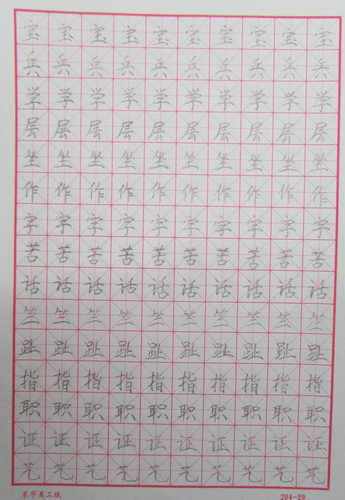 宝宝宝宝宝宝宝宝宝宝
兵兵兵兵兵兵兵兵兵兵
学学学学学学学学学学
层层层层层层层层层层
坐坐坐坐坐坐坐坐坐坐
作作作作作作作作作作
字字字字字字字字字字
苦苦苦苦苦苦苦苦苦苦
话话话话话话话话话话
竺竺竺竺竺竺竺竺竺竺
趾趾趾趾趾趾趾趾趾趾
指指指指指指指指指指
职职职职职职职职职职
证证证证证证证证证证
艺艺艺艺艺艺艺艺艺艺
米字美工纸